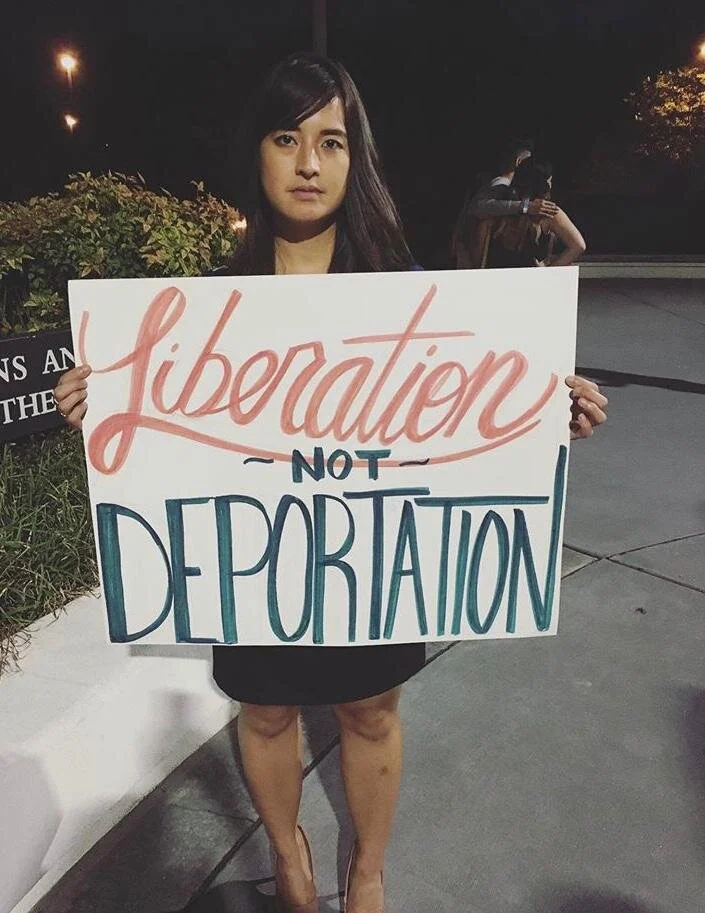 NS AN
THE
Liberation
~ NOT ~
DEPORTATION